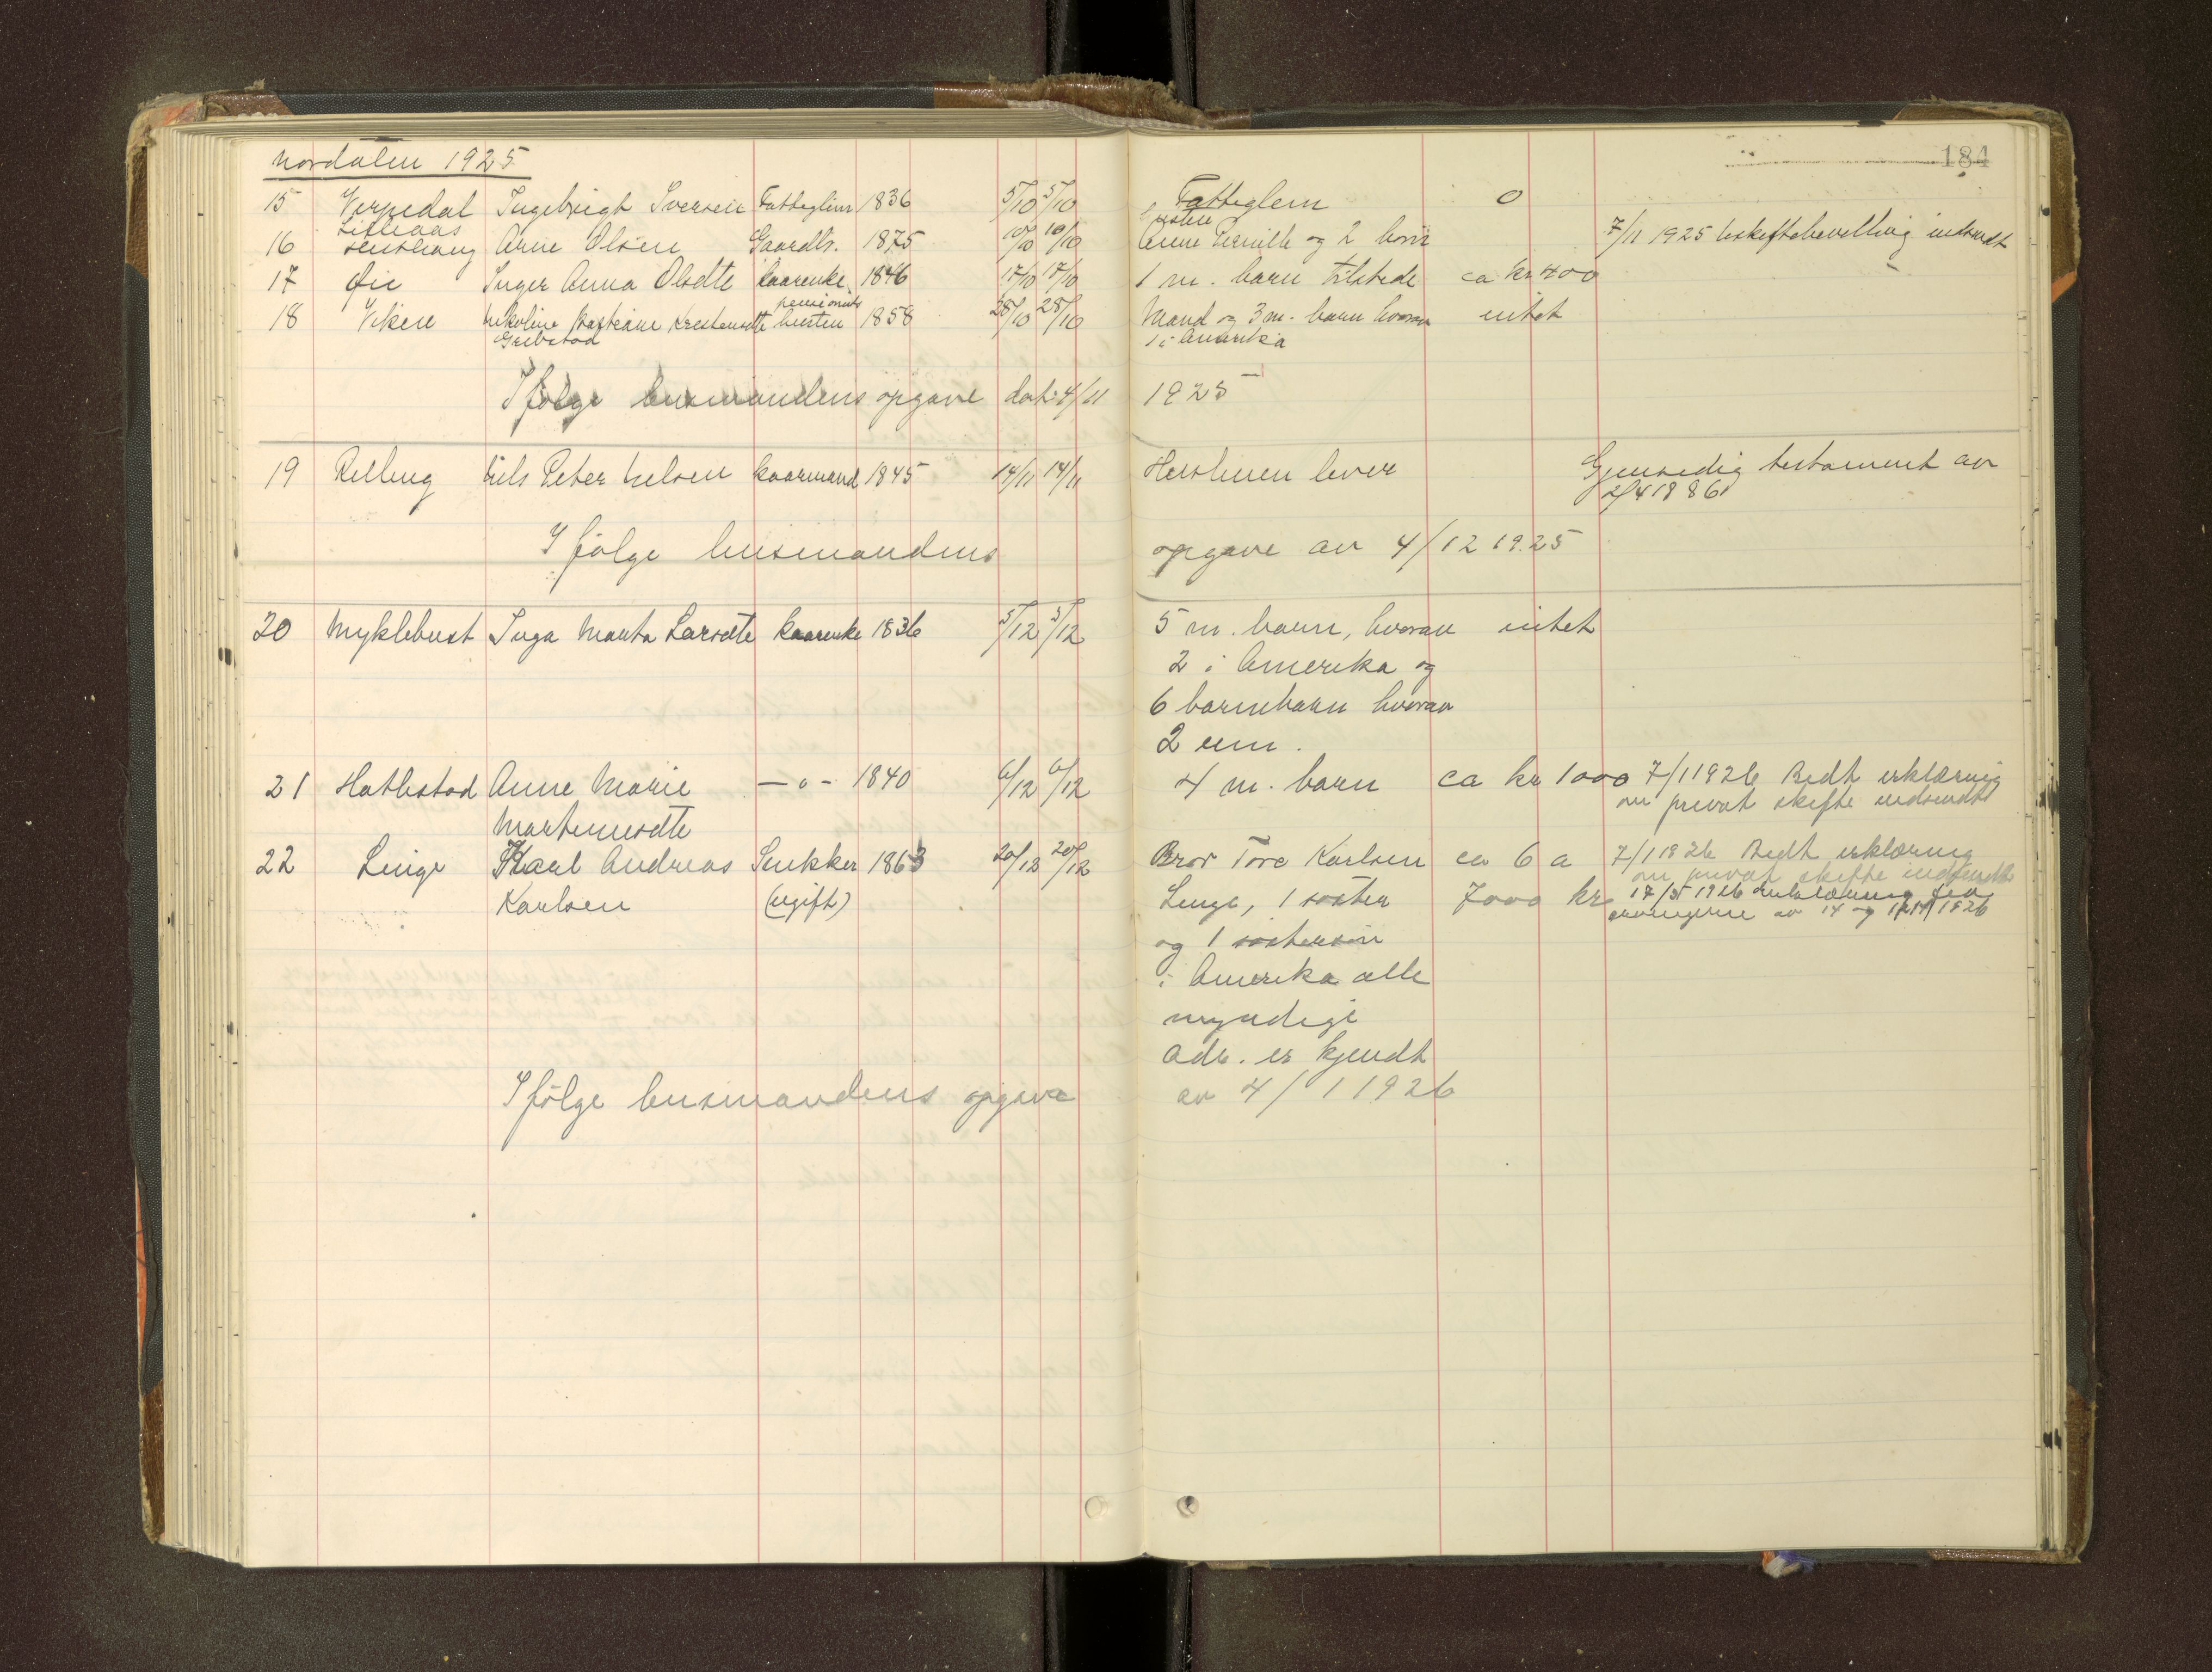 Nordalen 1925
184
15 Verpedal Ingebrigt Iversen Fattiglem 1836 5/10 5/10 Fattiglem 0
16 Lilleaas Arne Olsen Gaardbr. 1875 10/10 10/10 Enken Anne Pernille og 2 born 7/11 1925 Uskiftebevilling indsendt
17 Øie Inger Anna Olsdtr kaarenke 1846 17/10 17/10 1 m. barn tilstede ca kr 400
18 Viken Nikoline Kristensdtr pensionists hustru 1858 28/10 28/10 Mand og 3 m. barn hvorav intet
Grebstad 1 i Amerika
Ifølge lensmandens opgave dat. 4/11 1925
19 Relling Nils Peter Nilsen kaarmand 1845 14/11 14/11 Hustruen lever Gjensidig testament av
2/4 1886
Ifølge lensmandens opgave av 4/12 1925
20 Myklebust Inga Marta Larsdtr kaarenke 1836 5/12 5/12 5 m. barn, hvorav intet
2 i Amerika og
6 barnebarn hvorav
2 um.
21 Hatlestad Anne Marie — " — 1840 6/12 6/12 4 m. barn ca kr 1000 7/1 1926 Bedt erklæring
Martinusdtr om privat skifte indsendt
22 Linge Karl Andreas Snekker 1863 20/12 20/12 Bror Tore Karlsen ca 6 a 7/1 1926 Bedt erklæring
om privat skifte indsendt
Karlsen (ugift) Linge, 1 søster 7000 kr 17/5 1926 erklæring fra
arvingerne av 14 og
og 1 søstersøn
i Amerika alle
myndige
adr. er kjendt
Ifølge lensmandens opgave av 4/1 1926